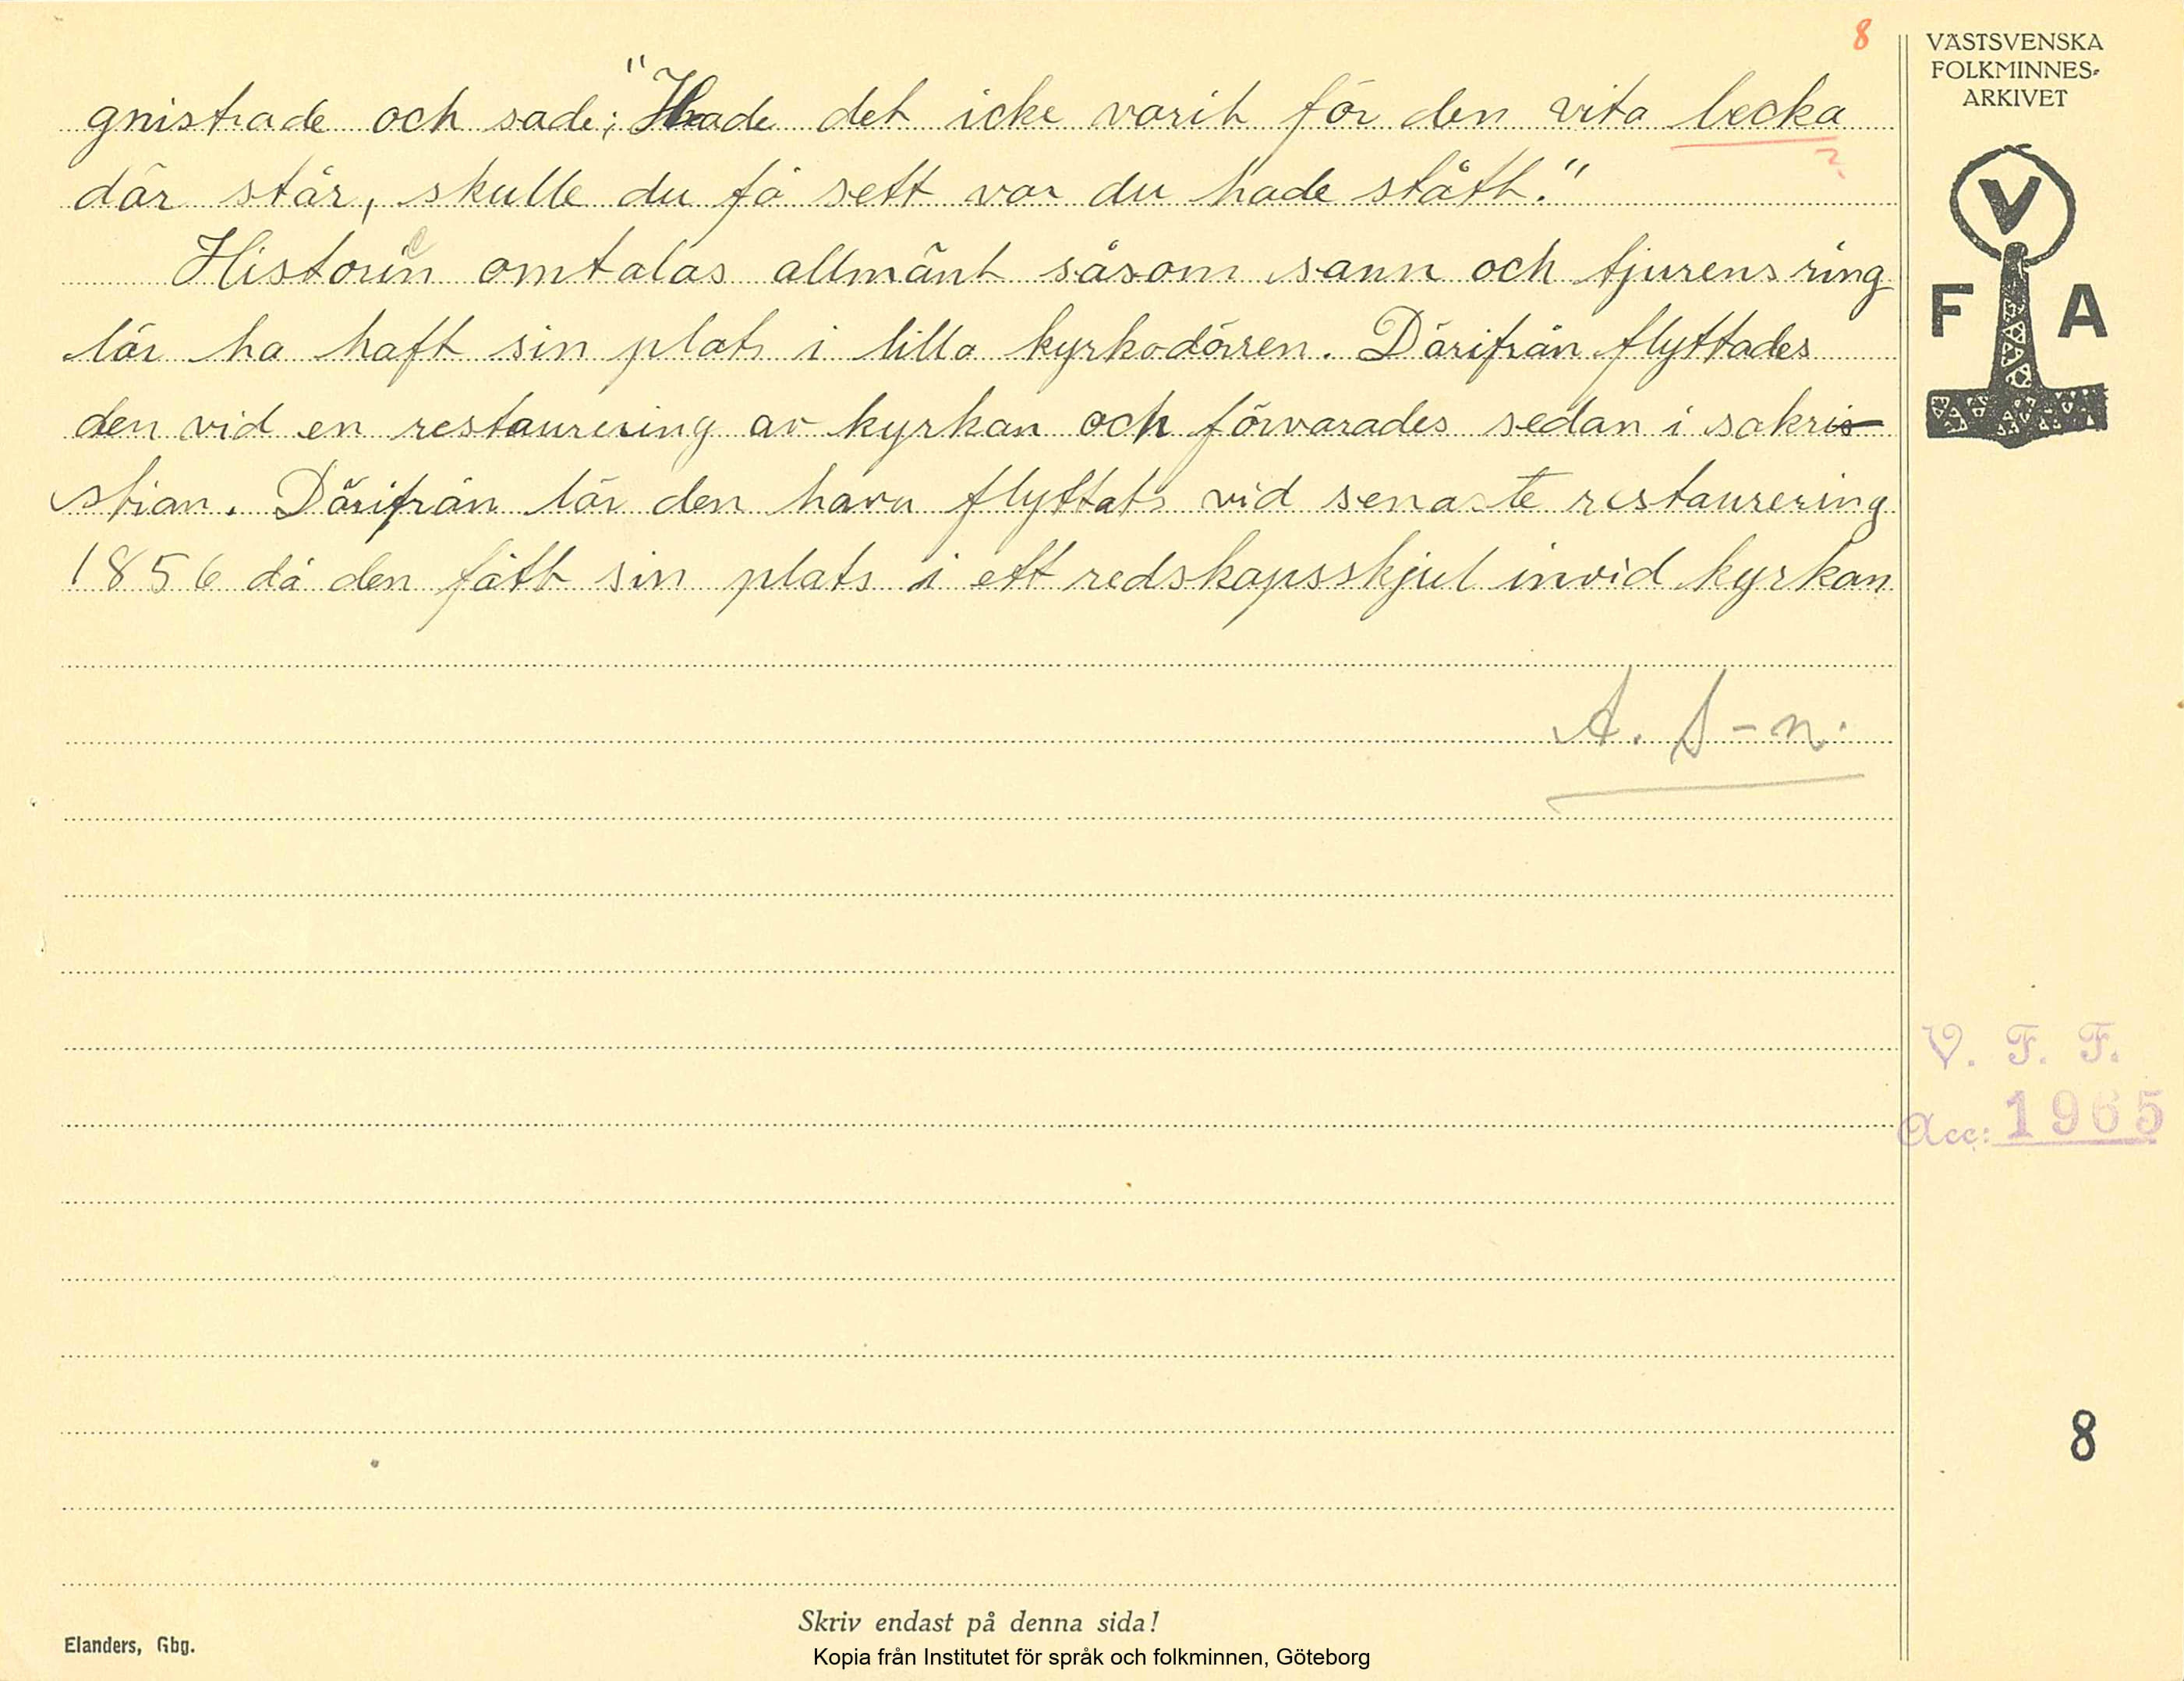 8
gnistrade och sade; "Hade det icke varit för den vita becka
?
där står, skulle du få sett var du hade stått."
Historien omtalas allmänt såsom sann och tjurens ring
lär ha haft sin plats i lilla kyrkodörren. Därifrån flyttades
den vid en restaurering av kyrkan och förvarades sedan i sakri
stian. Därifrån lär den hava flyttats vid senaste restaurering
1856 då den fått sin plats i ett redskapsskjul invid kyrkan
A. S-n.
VÄSTSVENSKA
FOLKMINNES-
ARKIVET
V
F A
V. F. F.
Acc: 1965
8
Skriv endast på denna sida!
Elanders, Gbg.
Kopia från Institutet för språk och folkminnen, Göteborg